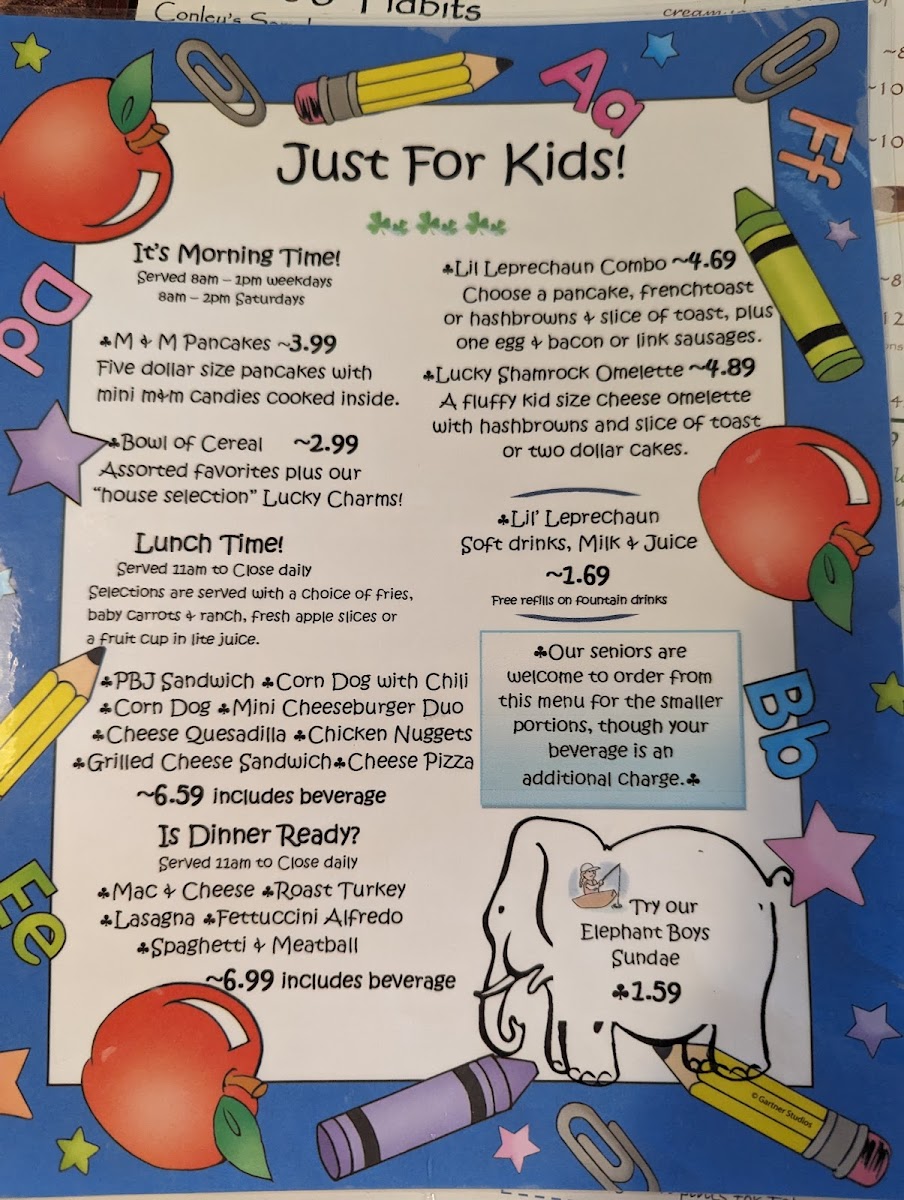 Tidbits
Conley's
cream
Aa
Ff
Dd
Just For Kids!
It's Morning Time!
Served 8am – 1pm weekdays
8am – 2pm Saturdays
♣M & M Pancakes ~3.99
Five dollar size pancakes with
mini m&m candies cooked inside.
♣Bowl of Cereal ~2.99
Assorted favorites plus our
"house selection" Lucky Charms!
Lunch Time!
Served 11am to Close daily
Selections are served with a choice of fries,
baby carrots & ranch, fresh apple slices or
a fruit cup in lite juice.
♣PBJ Sandwich ♣Corn Dog with Chili
♣Corn Dog ♣Mini Cheeseburger Duo
♣Cheese Quesadilla ♣Chicken Nuggets
♣Grilled Cheese Sandwich♣Cheese Pizza
~6.59 includes beverage
Is Dinner Ready?
Served 11am to Close daily
♣Mac & Cheese ♣Roast Turkey
♣Lasagna ♣Fettuccini Alfredo
♣Spaghetti & Meatball
~6.99 includes beverage
♣Lil Leprechaun Combo ~4.69
Choose a pancake, frenchtoast
or hashbrowns & slice of toast, plus
one egg & bacon or link sausages.
♣Lucky Shamrock Omelette ~4.89
A fluffy kid size cheese omelette
with hashbrowns and slice of toast
or two dollar cakes.
♣Lil' Leprechaun
Soft drinks, Milk & Juice
~1.69
Free refills on fountain drinks
♣Our seniors are
welcome to order from
this menu for the smaller
portions, though your
beverage is an
additional charge.♣
Try our
Elephant Boys
Sundae
♣1.59
Bb
Ee
© Gartner Studios